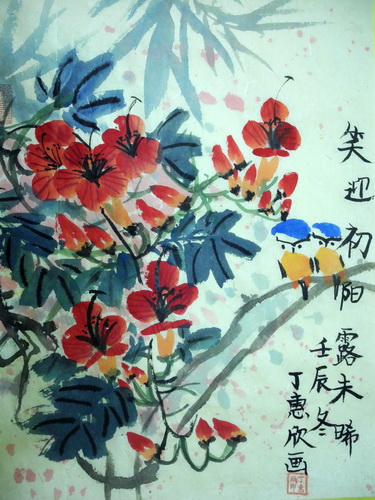 笑迎初阳露未晞
壬辰冬
丁惠欣画